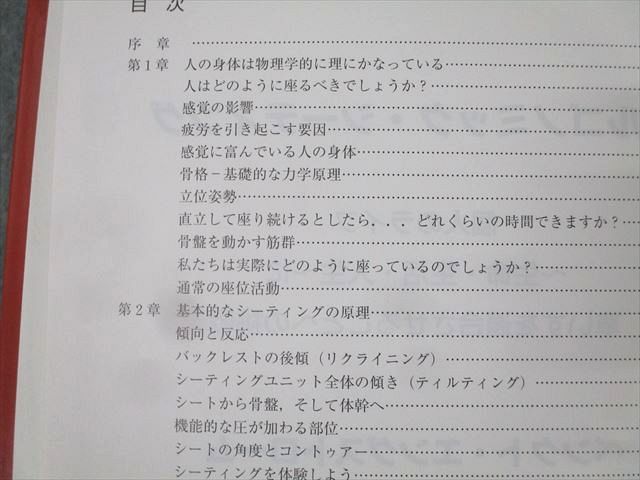 目　次
序　章 ……………………
第１章　人の身体は物理学的に理にかなっている……………………
人はどのように座るべきでしょうか？……………………
感覚の影響……………………
疲労を引き起こす要因……………………
感覚に富んでいる人の身体……………………
骨格－基礎的な力学原理……………………
立位姿勢……………………
直立して座り続けるとしたら．．．どれくらいの時間できますか？……
骨盤を動かす筋群……………………
私たちは実際にどのように座っているのでしょうか？……………………
通常の座位活動……………………
第２章　基本的なシーティングの原理……………………
傾向と反応……………………
バックレストの後傾（リクライニング）……………………
シーティングユニット全体の傾き（ティルティング）……………………
シートから骨盤，そして体幹へ……………………
機能的な圧が加わる部位……………………
シートの角度とコントゥアー……………………
シーティングを体験しよう……………………